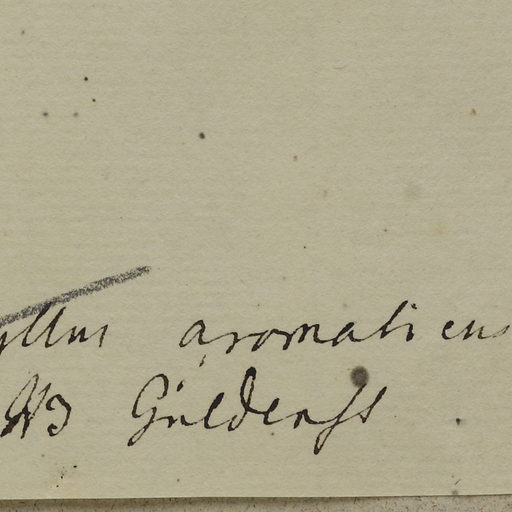 yllus aromaticus
HB Güldenst